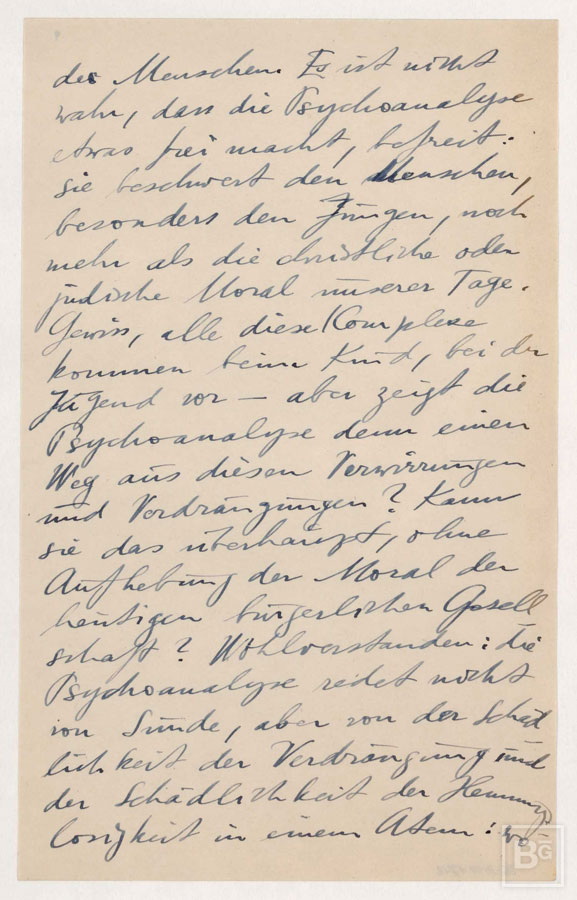 des Menschen. Es ist nicht
wahr, dass die Psychoanalyse
etwas frei macht, befreit:
sie beschwert den Menschen,
besonders den Jungen, noch
mehr als die christliche oder
jüdische Moral unserer Tage.
Gewiss, alle diese Complexe
kommen beim Kind, bei der
Jugend vor – aber zeigt die
Psychoanalyse denn einen
Weg aus diesen Verwirrungen
und Verdrängungen? Kann
sie das überhaupt, ohne
Aufhebung der Moral der
heutigen bürgerlichen Gesell
schaft? Wohlverstanden: die
Psychoanalyse redet nicht
von Sünde, aber von der Schäd
lichkeit der Verdrängung und
der Schädlichkeit der Hemmungs
losigkeit in einem Atem: wo
BG